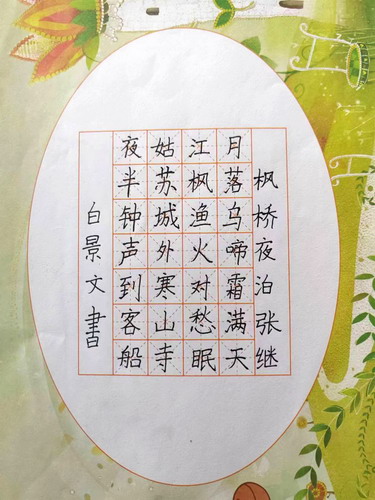 枫桥夜泊张继
月落乌啼霜满天
江枫渔火对愁眠
姑苏城外寒山寺
夜半钟声到客船
白景文書